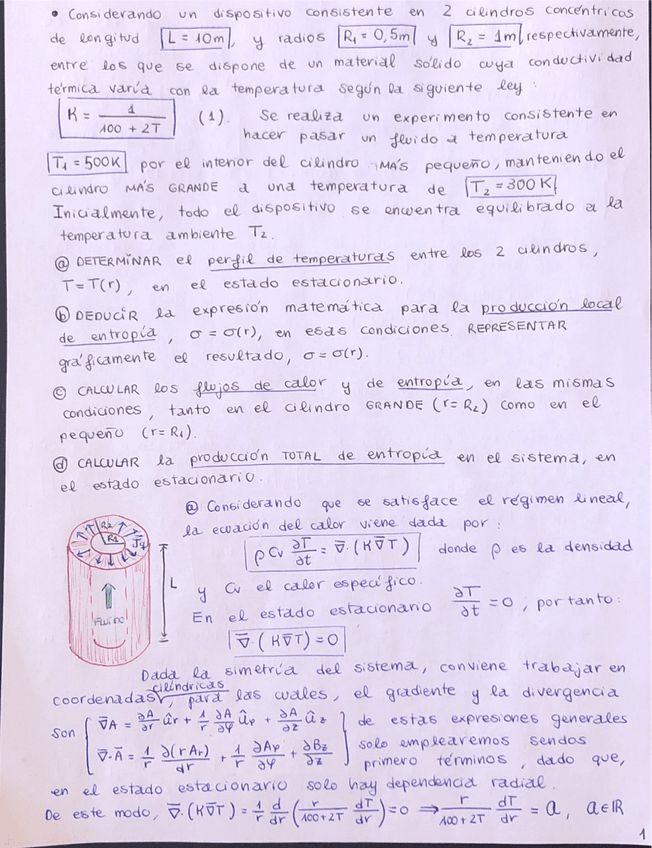 • Considerando un dispositivo consistente en 2 cilindros concéntricos
de longitud L = 10m, y radios R₁ = 0,5m y R₂ = 1m respectivamente,
entre los que se dispone de un material sólido cuya conductividad
térmica varía con la temperatura según la siguiente ley:
K = 1/(100 + 2T) (1). Se realiza un experimento consistente en
hacer pasar un fluido a temperatura
T₁ = 500K por el interior del cilindro MÁS pequeño, manteniendo el
cilindro MÁS GRANDE a una temperatura de T₂ = 300 K
Inicialmente, todo el dispositivo se encuentra equilibrado a la
temperatura ambiente T₂.
ⓐ DETERMINAR el perfil de temperaturas entre los 2 cilindros,
T = T(r), en el estado estacionario.
ⓑ DEDUCIR la expresión matemática para la producción local
de entropía, σ = σ(r), en esas condiciones. REPRESENTAR
gráficamente el resultado, σ = σ(r).
ⓒ CALCULAR los flujos de calor y de entropía, en las mismas
condiciones, tanto en el cilindro GRANDE (r = R₂) como en el
pequeño (r = R₁).
ⓓ CALCULAR la producción TOTAL de entropía en el sistema, en
el estado estacionario.
ⓐ Considerando que se satisface el régimen lineal,
la ecuación del calor viene dada por:
ρ Cv ∂T/∂t = ∇̄·(K∇̄T) donde ρ es la densidad
y Cv el calor específico.
En el estado estacionario ∂T/∂t = 0, por tanto:
∇̄·(K∇̄T) = 0
R₂
R₁
L
Fluido
Dada la simetría del sistema, conviene trabajar en
coordenadas cilíndricas, para las cuales, el gradiente y la divergencia
son { ∇̄A = ∂A/∂r ûr + 1/r ∂A/∂φ ûφ + ∂A/∂z ûz } de estas expresiones generales
∇̄·Ā = 1/r ∂(rAr)/dr + 1/r ∂Aφ/∂φ + ∂Bz/∂z solo emplearemos sendos
primero términos, dado que,
en el estado estacionario solo hay dependencia radial.
De este modo, ∇̄·(K∇̄T) = 1/r d/dr (r/(100+2T) dT/dr) = 0 ⇒ r/(100+2T) dT/dr = a, a∈ℝ
1